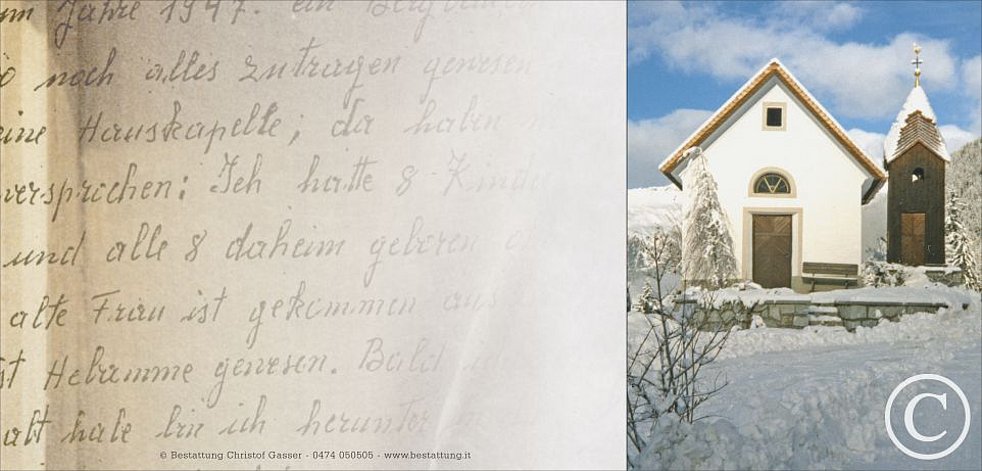 im Jahre 1947. ein Bergbauern
so noch alles zutragen gewesen
eine Hauskapelle; da haben
versprochen: Ich hatte 8 Kinder
und alle 8 daheim geboren
alte Frau ist gekommen aus
ist Hebamme gewesen. Bald
alt habe bin ich herunter
© Bestattung Christof Gasser - 0474 050505 - www.bestattung.it
©